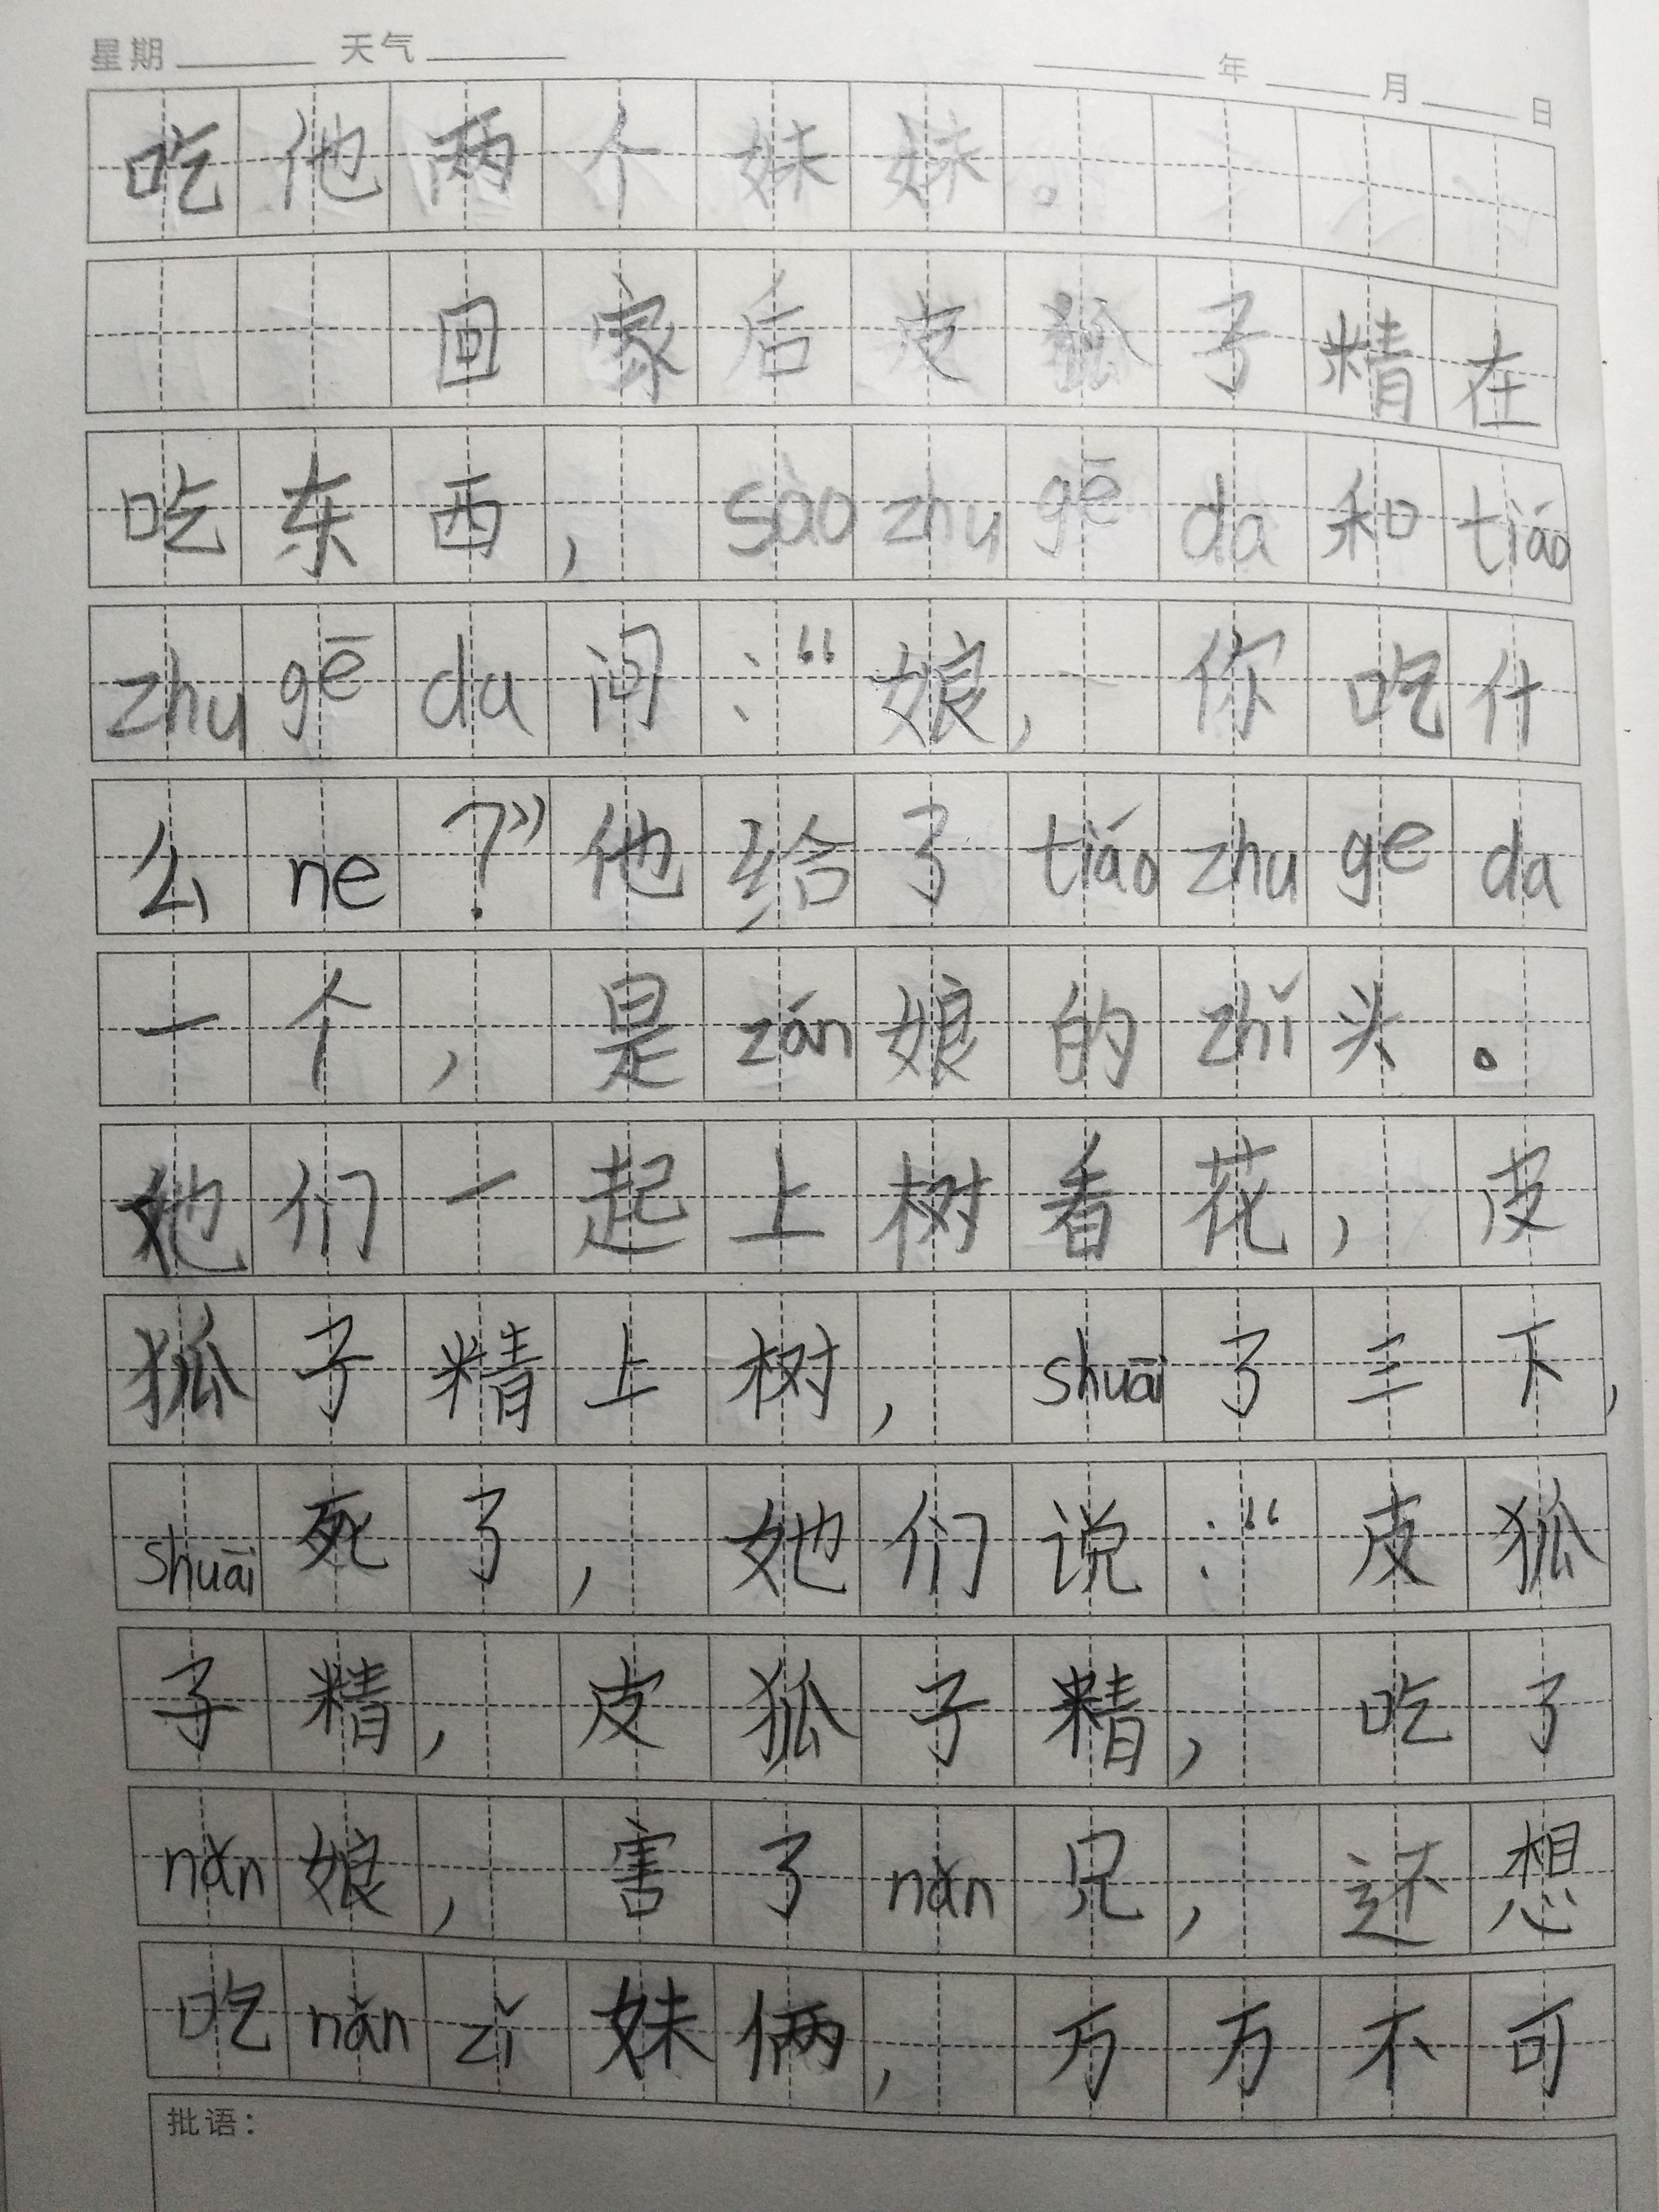 星期 天气 年 月 日
吃他两个妹妹。
回家后皮狐子精在
吃东西，sào zhu gē da 和 tiáo
zhu gē da 问：“娘，你吃什
么 ne？”他给了 tiáo zhu ge da
一个，是 zán 娘的 zhǐ 头。
她们一起上树看花，皮
狐子精上树，shuāi 了三下，
shuāi 死了，她们说：“皮狐
子精，皮狐子精，吃了
nǎn 娘，害了 nǎn 兄，还想
吃 nǎn zǐ 妹俩，万万不可
批语：